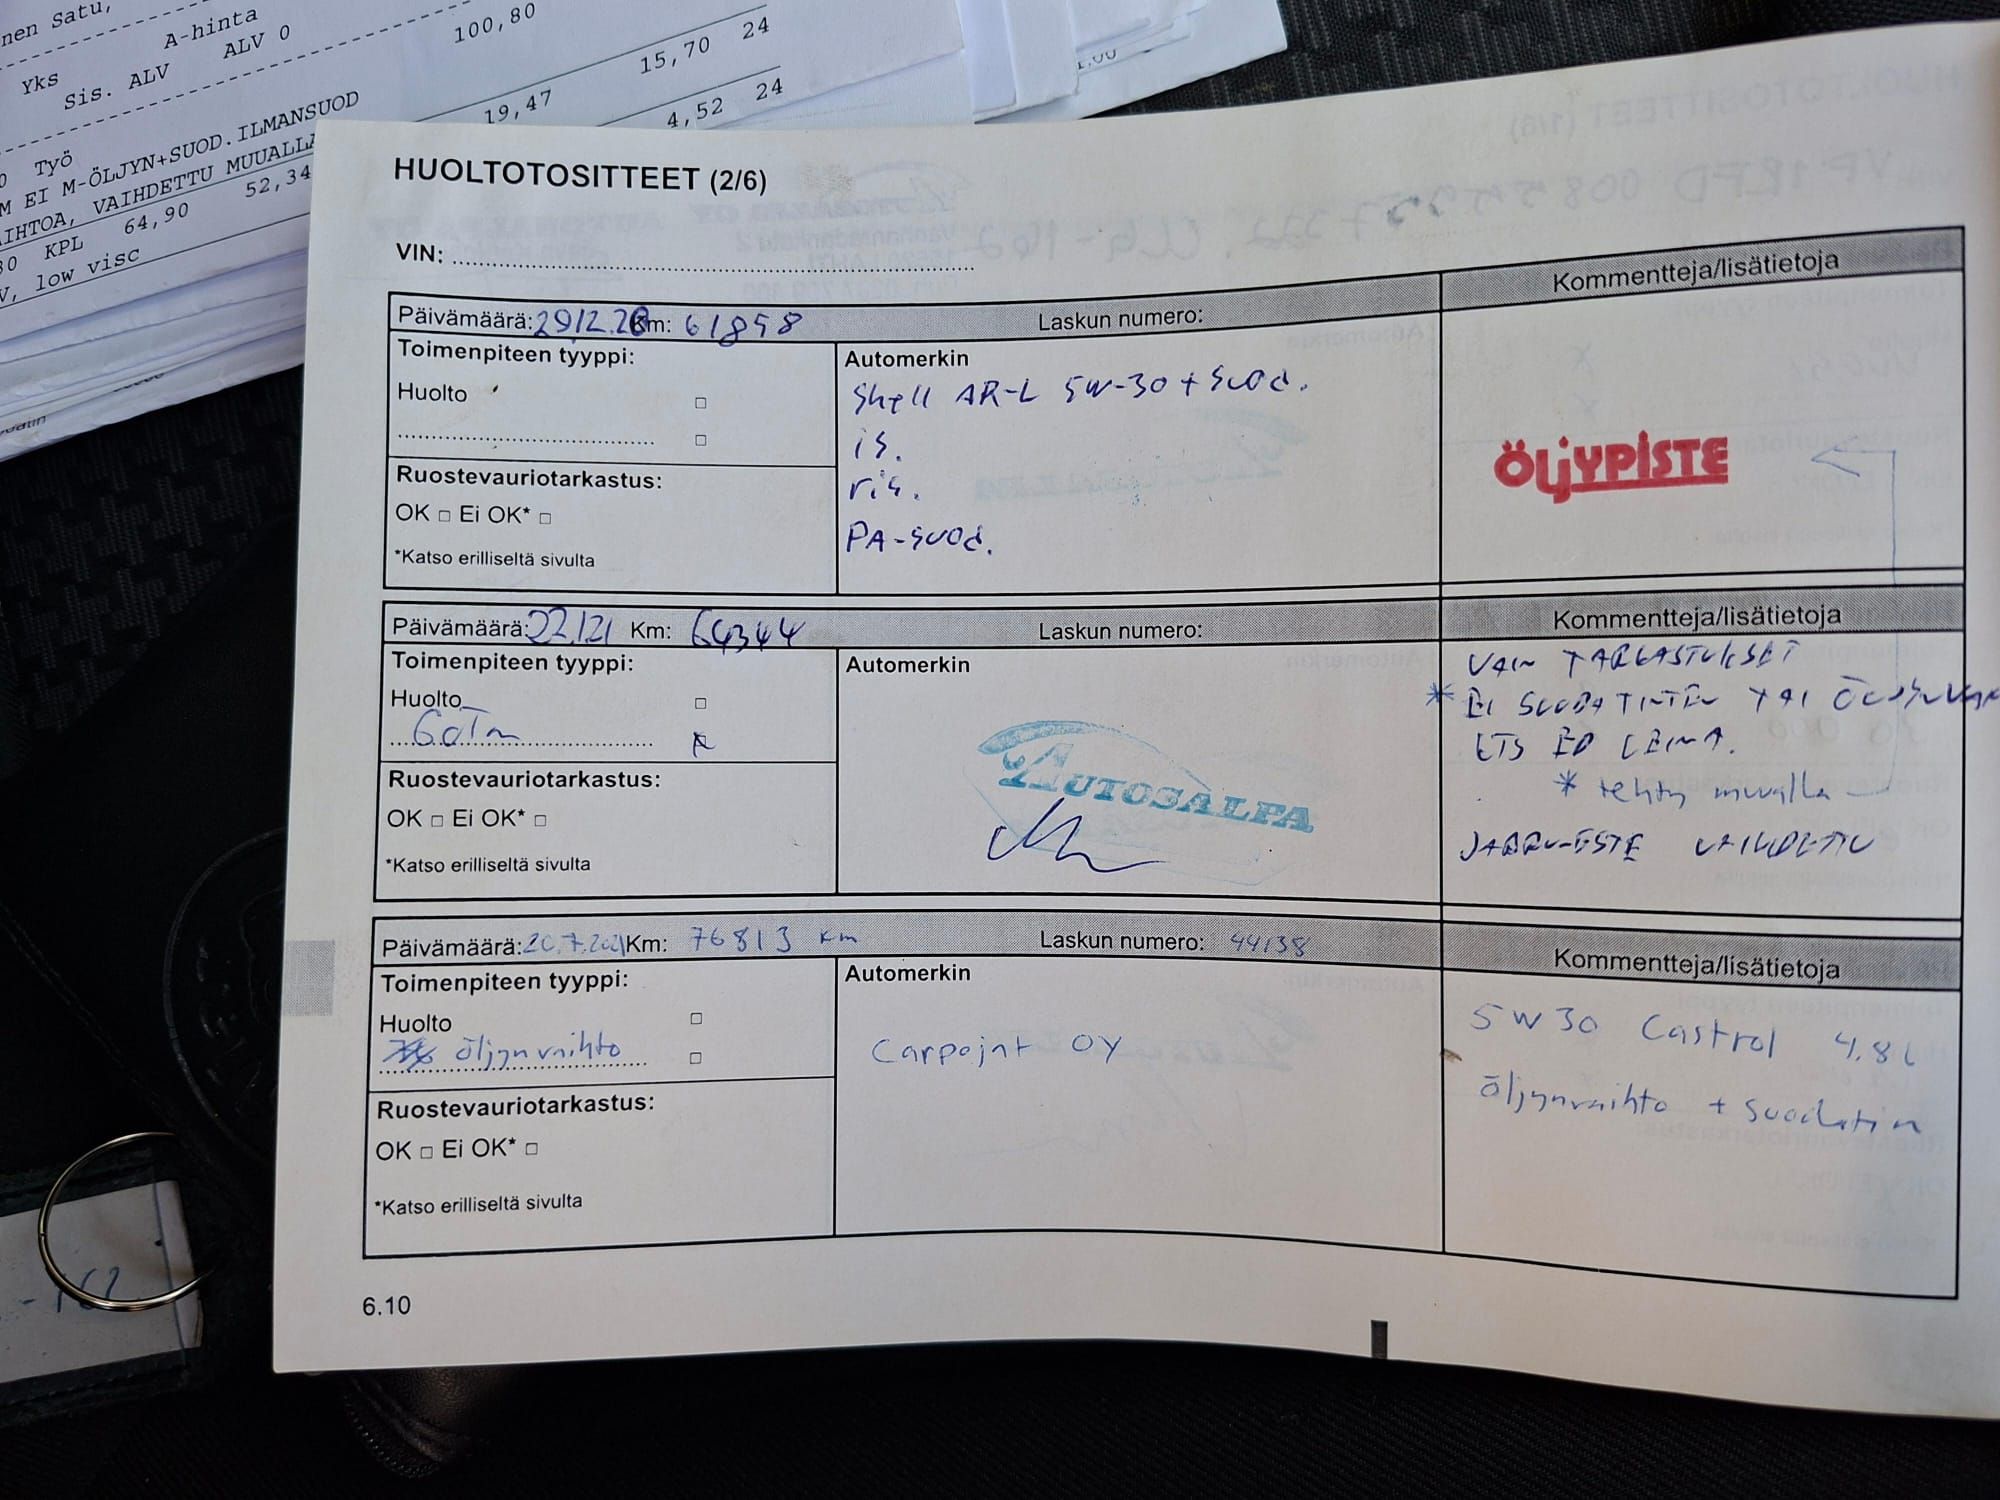 nen Satu,
A-hinta
Yks
Sis. ALV ALV 0
100,80
15,70 24
19,47
4,52 24
Työ
M EI M-ÖLJYN+SUOD.ILMANSUOD
AIHTOA, VAIHDETTU MUUALLA
30 KPL 64,90 52,34
V, low visc
HUOLTOTOSITTEET (2/6)
VIN:
Päivämäärä: 29.12.20 Km: 61858 Laskun numero: Kommentteja/lisätietoja
Toimenpiteen tyyppi: Automerkin
Huolto Shell AR-L 5W-30 + Suod.
is.
ris.
PA-suod.
ÖLJYPISTE
Ruostevauriotarkastus:
OK □ Ei OK* □
*Katso erilliseltä sivulta
Päivämäärä: 22.1.21 Km: 64344 Laskun numero: Kommentteja/lisätietoja
Toimenpiteen tyyppi: Automerkin
Huolto
60Tm
AUTOSALPA
VAIN TARKASTUKSET
* EI SUODATINTEN TAI
* tehty muualla
JARRUNESTE VAIHDETTU
Ruostevauriotarkastus:
OK □ Ei OK* □
*Katso erilliseltä sivulta
Päivämäärä: 20.7.2021 Km: 76813 km Laskun numero: 44138 Kommentteja/lisätietoja
Toimenpiteen tyyppi: Automerkin
Huolto
öljynvaihto
Carpojat OY
5W30 Castrol 4.8L
öljynvaihto + suodatin
Ruostevauriotarkastus:
OK □ Ei OK* □
*Katso erilliseltä sivulta
6.10
-162